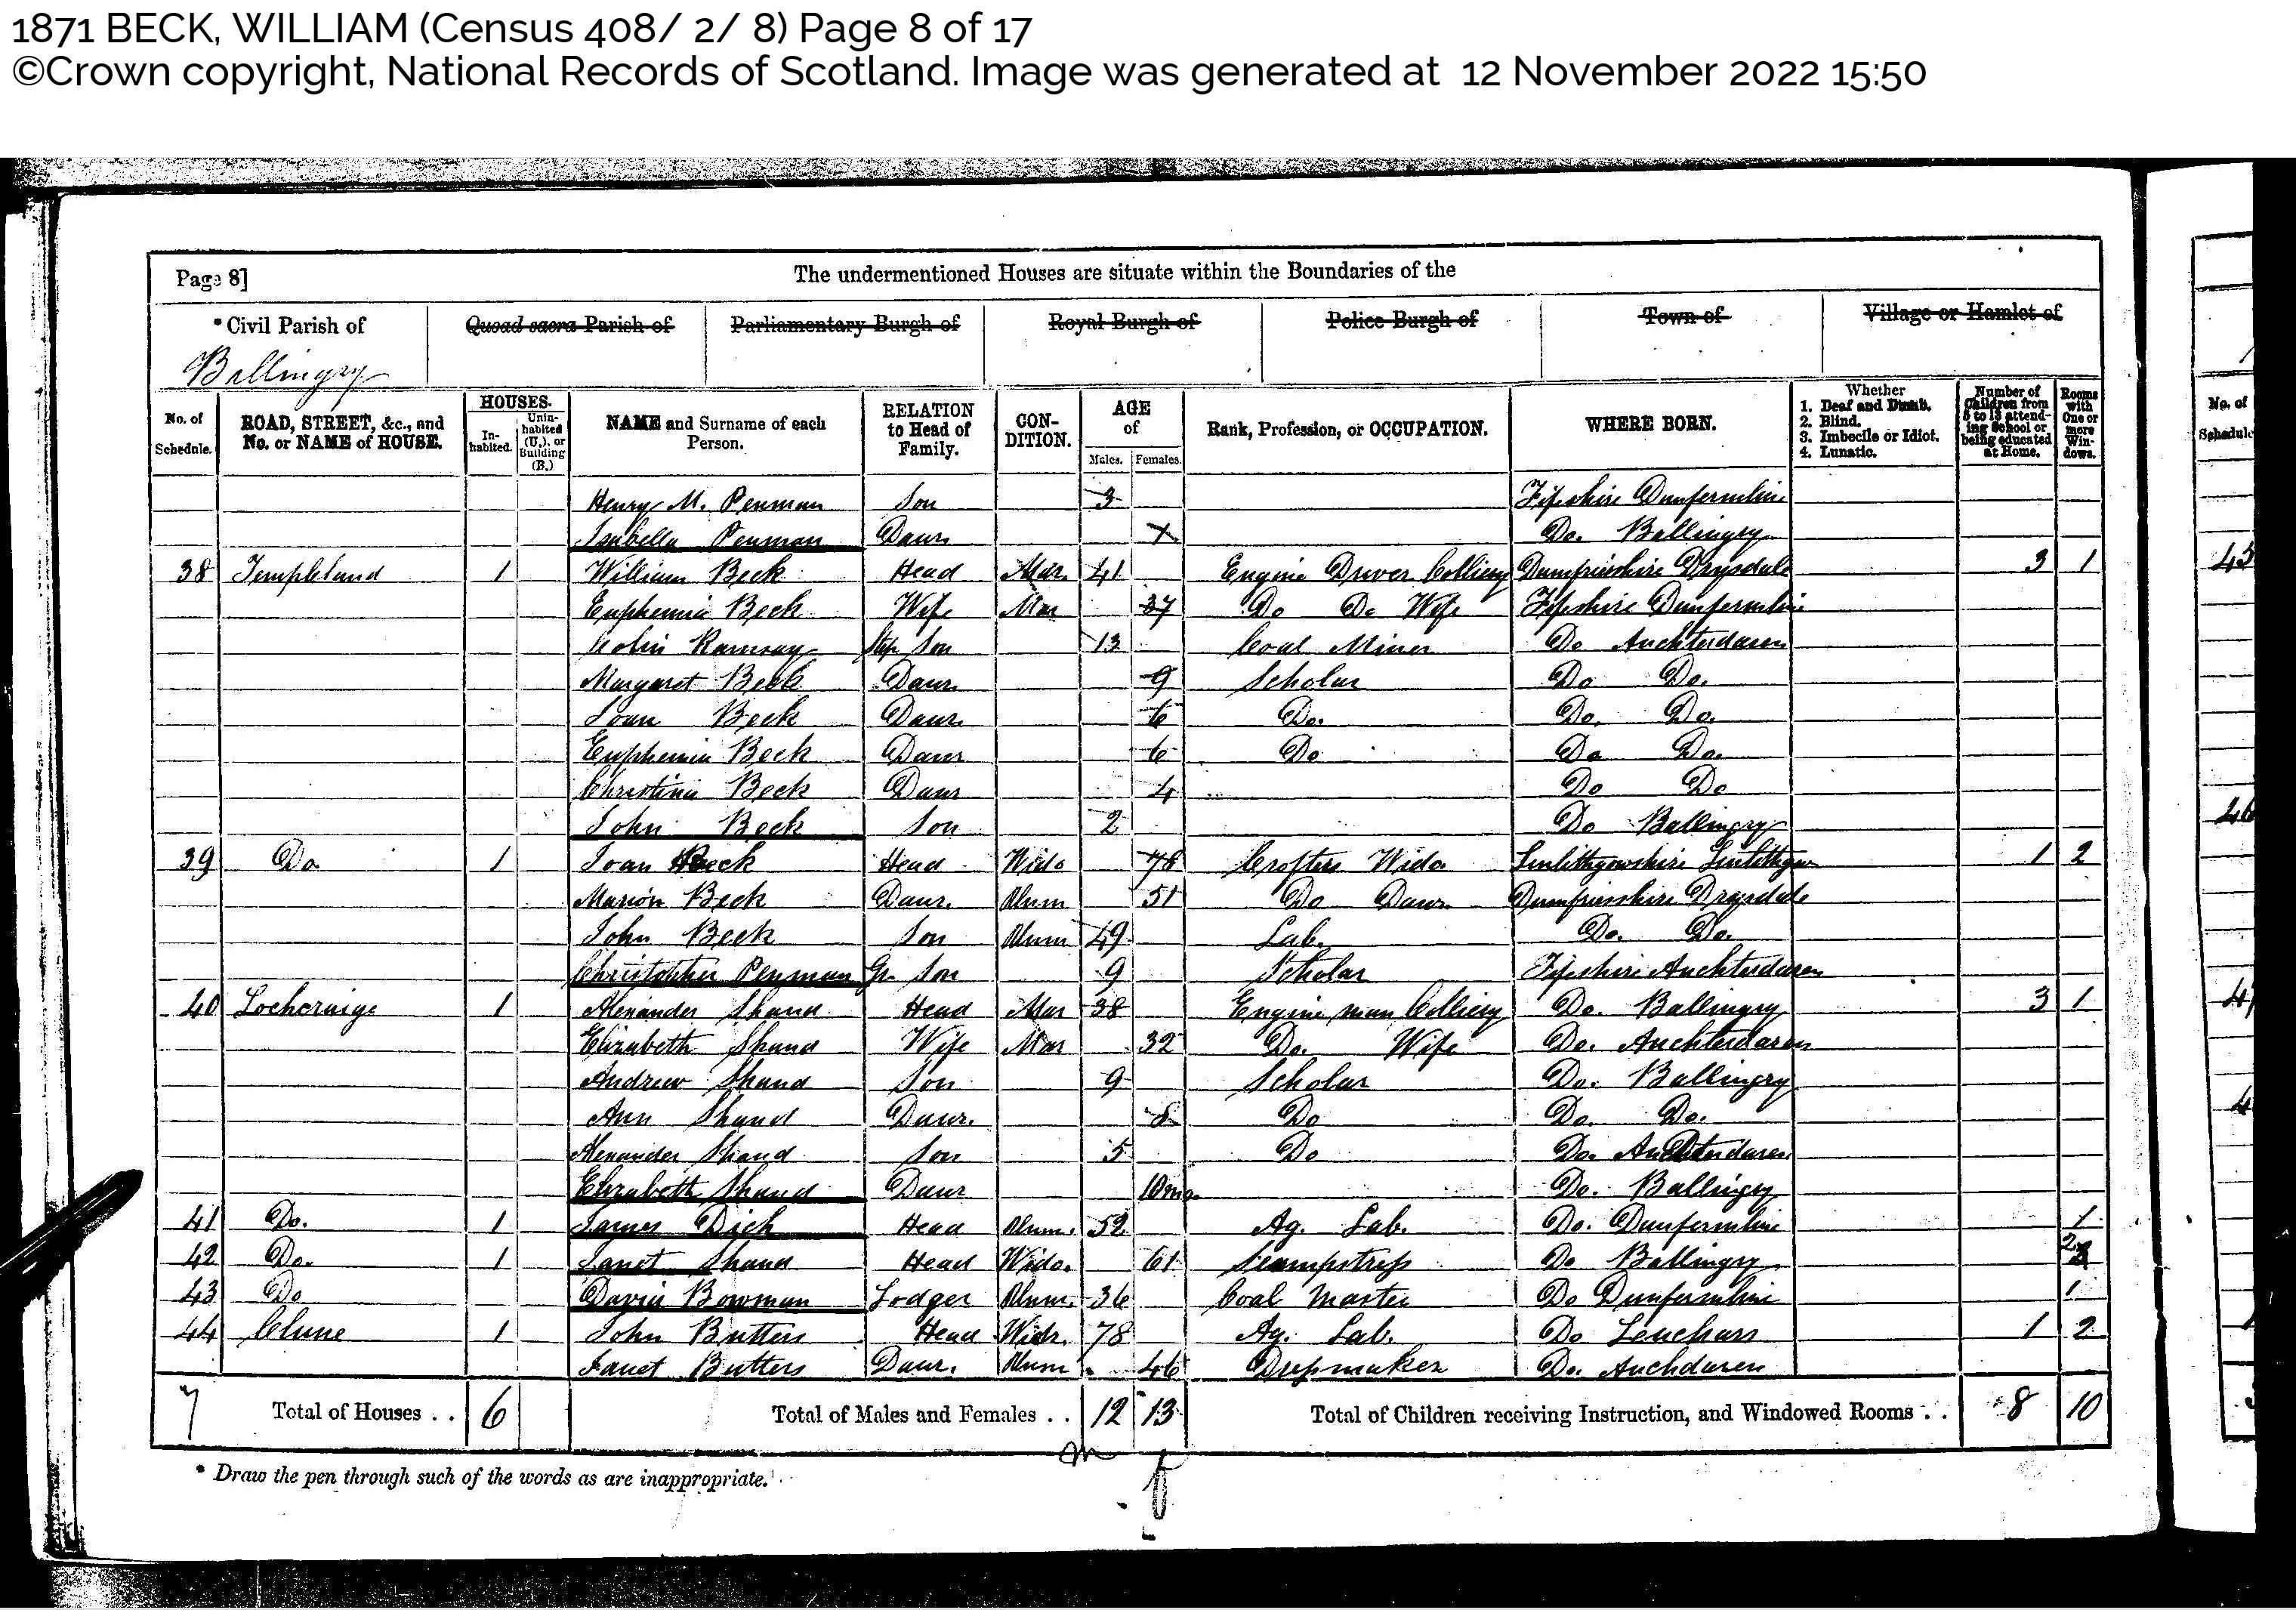 1871 BECK, WILLIAM (Census 408/ 2/ 8) Page 8 of 17
©Crown copyright, National Records of Scotland. Image was generated at 12 November 2022 15:50
Page 8] The undermentioned Houses are situate within the Boundaries of the
* Civil Parish of Quoad sacra Parish of Parliamentary Burgh of Royal Burgh of Police Burgh of Town of Village or Hamlet of
Ballingry
No. of Schedule. ROAD, STREET, &c., and No. or NAME of HOUSE. HOUSES. Inhabited. Uninhabited (U.), or Building (B.) NAME and Surname of each Person. RELATION to Head of Family. CONDITION. AGE of Males. Females. Rank, Profession, or OCCUPATION. WHERE BORN. Whether 1. Deaf and Dumb. 2. Blind. 3. Imbecile or Idiot. 4. Lunatic. Number of Children from 5 to 13 attending School or being educated at Home. Rooms with One or more Windows.
Henry M. Penman Son 3 Fifeshire Dunfermline
Isabella Penman Daur Do. Ballingry
38 Templeland 1 William Beck Head Mar. 41 Engine Driver Colliery Dumfriesshire Drysdale 3 1
Euphemia Beck Wife Mar 37 Do Do Wife Fifeshire Dunfermline
Colin Ramsay Step Son 13 Coal Miner Do Auchterdaren
Margaret Beck Daur. 9 Scholar Do Do.
Joan Beck Daur. 6 Do. Do. Do.
Euphemia Beck Daur 6 Do Do Do.
Christina Beck Daur 4 Do Do
John Beck Son 2 Do Ballingry
39 Do. 1 Joan Beck Head Wido 78 Crofters Wido Linlithgowshire Linlithgow 1 2
Marion Beck Daur. Unm 51 Do Daur. Dumfriesshire Drysdale
John Beck Son Unm 49 Lab. Do. Do.
Christopher Penman Gr. Son 9 Scholar Fifeshire Auchterdaren
40 Lochcraige 1 Alexander Shand Head Mar 38 Engine man Colliery Do. Ballingry 3 1
Elizabeth Shand Wife Mar 32 Do. Wife Do. Auchterdaren
Andrew Shand Son 9 Scholar Do. Ballingry
Ann Shand Daur. 8 Do Do. Do.
Alexander Shand Son 5 Do Do. Auchterdaren
Elizabeth Shand Daur 10mo. Do. Ballingry
41 Do. 1 James Dick Head Unm. 52 Ag. Lab. Do. Dunfermline 1
42 Do. 1 Janet Shand Head Wido. 61 Seampstress Do Ballingry 2
43 Do David Bowman Lodger Unm. 36 Coal Master Do Dunfermline 1
44 Clune 1 John Butters Head Widr. 78 Ag. Lab. Do Leuchars 1 2
Janet Butters Daur. Unm 46 Dressmaker Do. Auchdaren
7 Total of Houses . . 6 Total of Males and Females . . 12 13 Total of Children receiving Instruction, and Windowed Rooms . . 8 10
m f
* Draw the pen through such of the words as are inappropriate.
No. of
Schedule